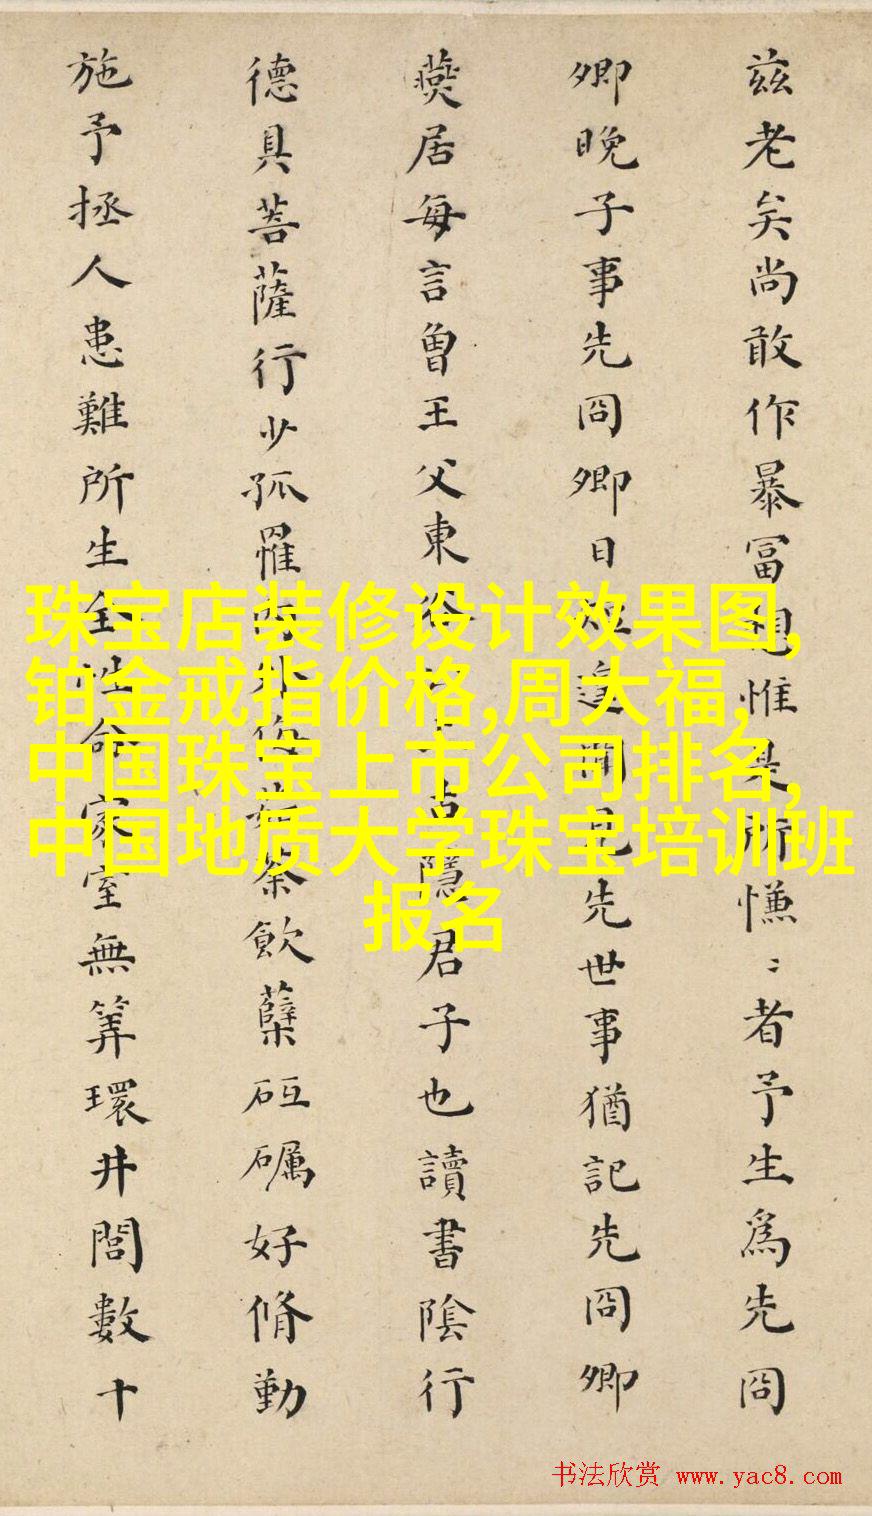 兹老矣尚敢作暴富想惟是所慊〻者予生為先冏
卿晚子事先冏卿日短逮聞見先世事猶記先冏卿
燕居每言曾王父東
君子也讀書陰行
德具菩薩行少孤罹
茹荼飲蘗砥礪好脩勤
施予拯人患難所生全性命家室無筭環井閭數十
珠宝店装修设计效果图,
铂金戒指价格,周大福,
中国珠宝上市公司排名,
中国地质大学珠宝培训班
报名
书法欣赏 www.yac8.com